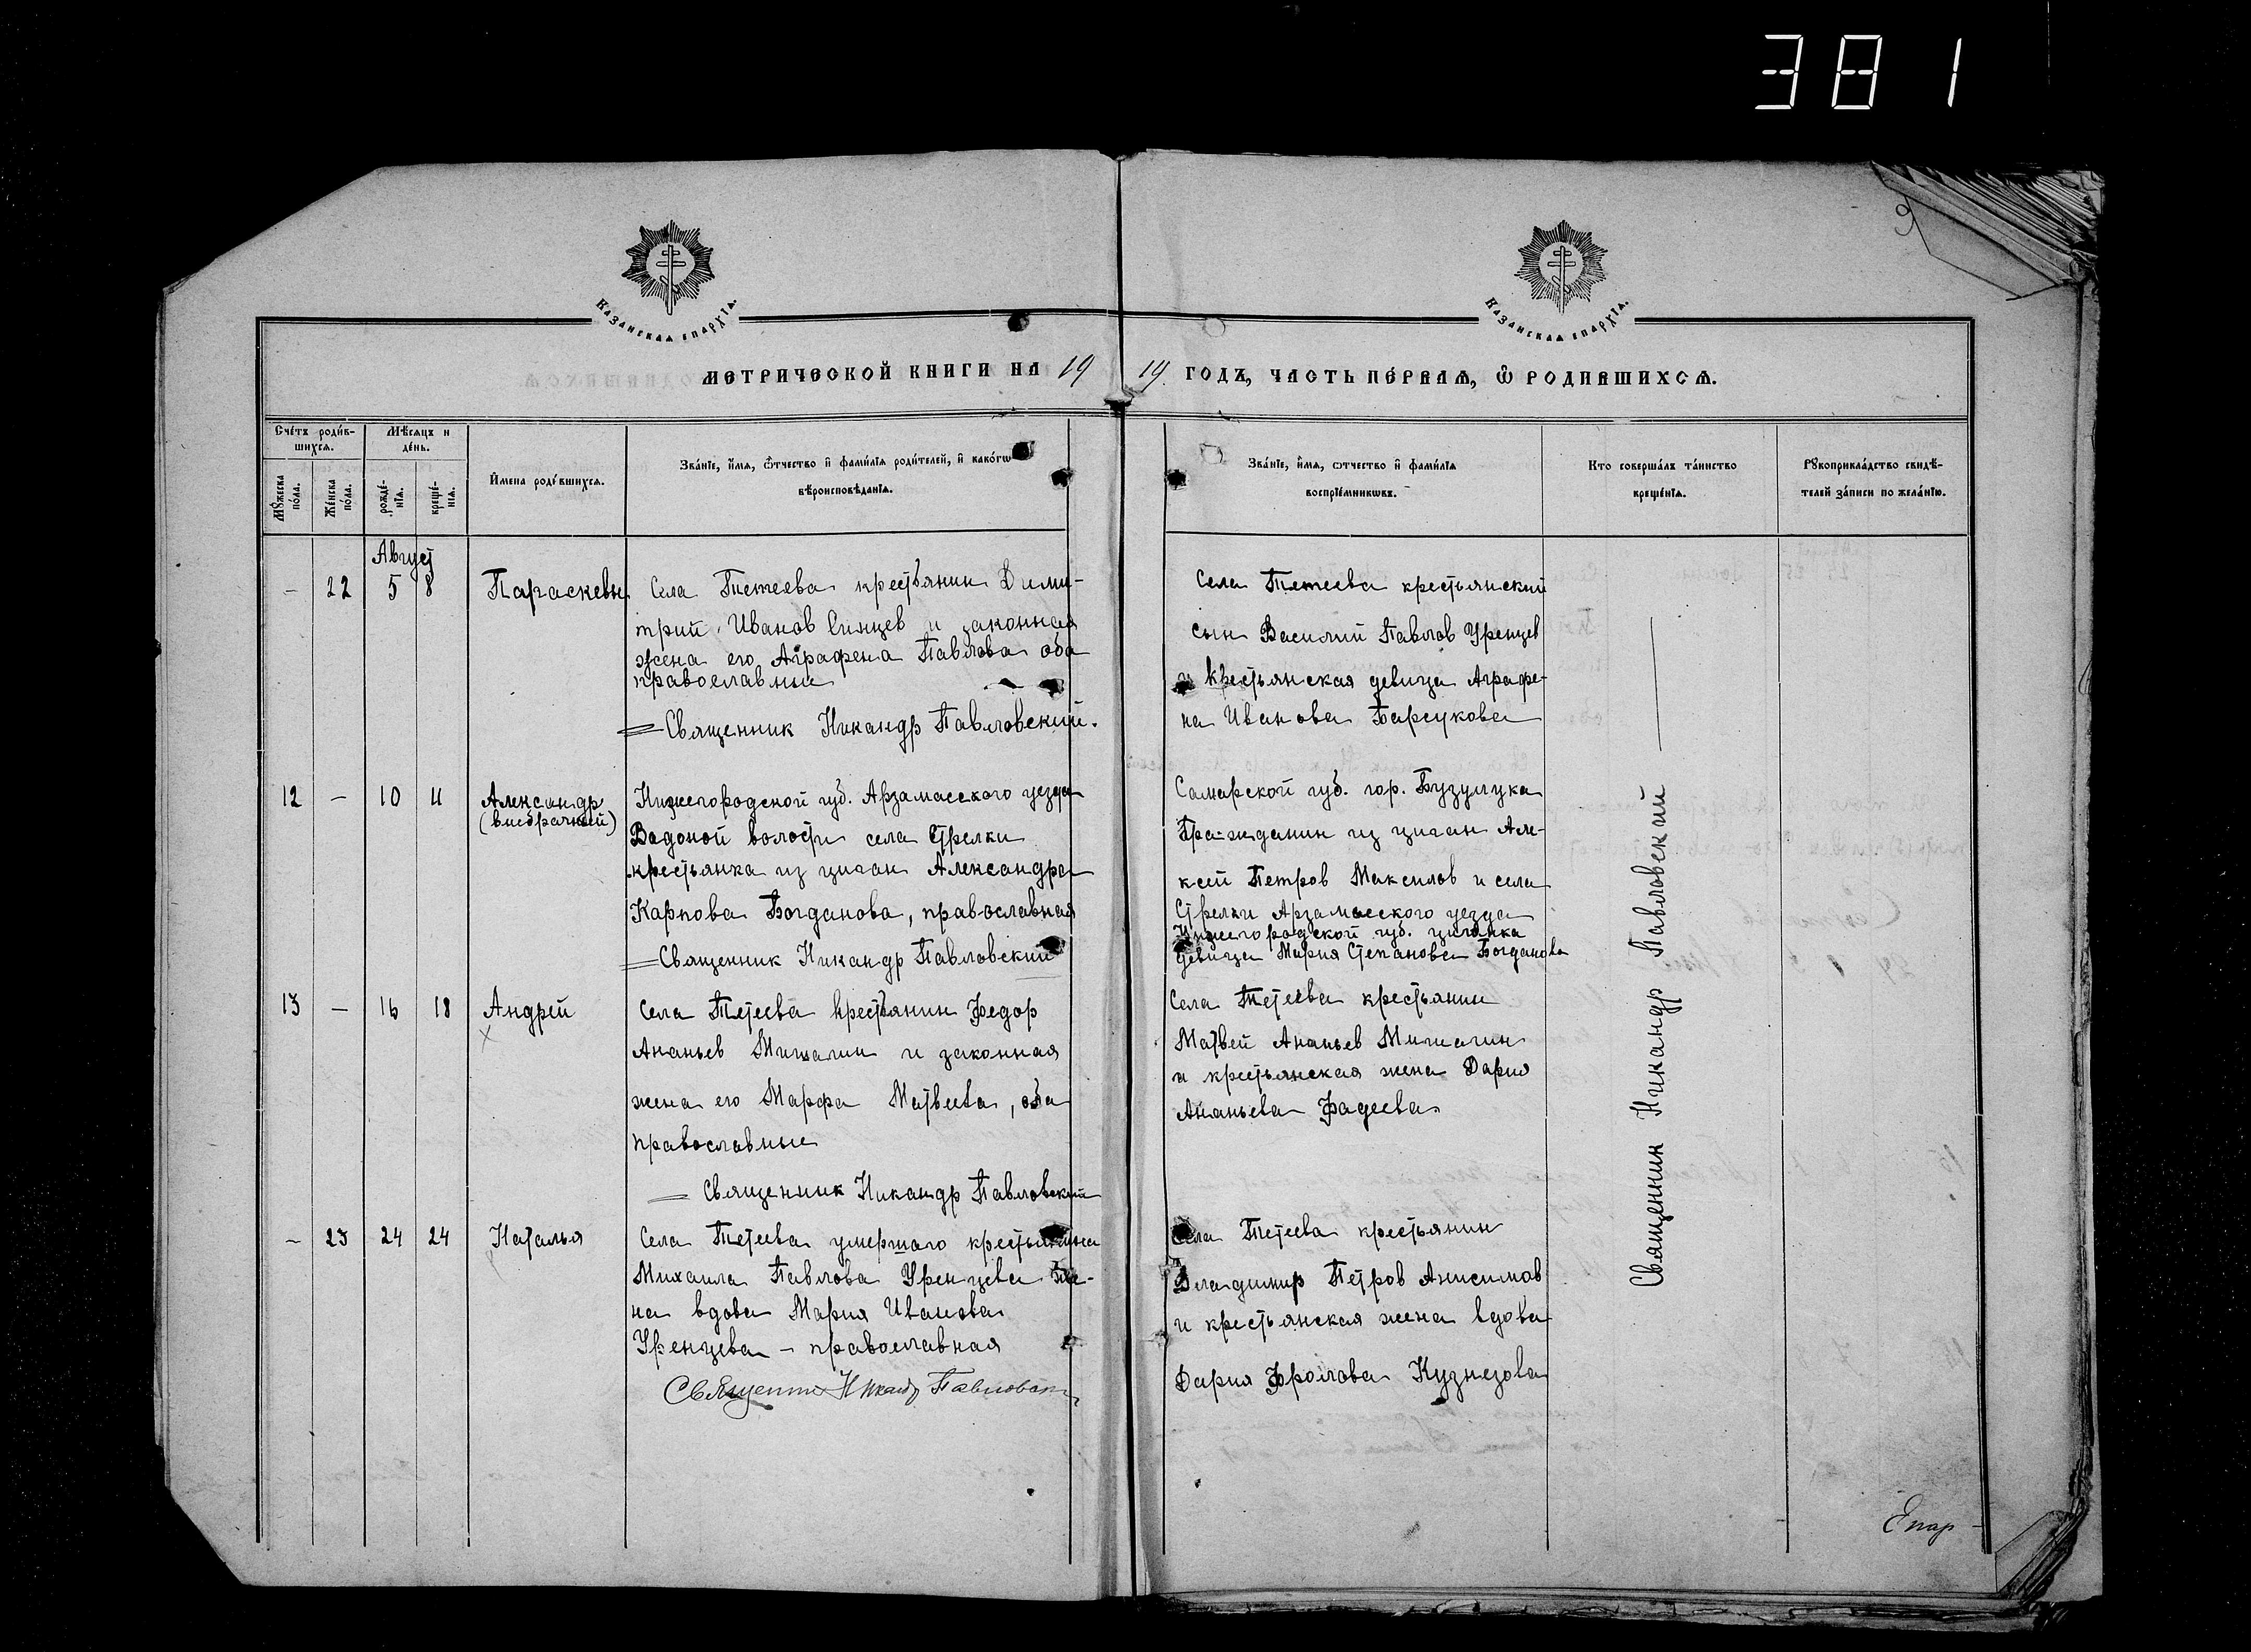 381
9
КАЗАНСКАѦ ЕПАРХІѦ.
КАЗАНСКАѦ ЕПАРХІѦ.
МЕТРИЧЕСКОЙ КНИГИ НА 19 19 ГОДЪ, ЧАСТЬ ПЕ́РВАѦ, Ѿ РОДИВШИХСѦ.
Сче́тъ роди́в-
шихсѧ.
Мѣ́сѧцъ и
де́нь.
Мꙋ́жеска по́ла.
Же́нска по́ла.
рожде́-
нїѧ.
креще́-
нїѧ.
И҆мена роди́вшихсѧ.
Зва́нїе, и҆́мѧ, ѻ҆́тчество и҆ фами́лїѧ роди́телей, и҆ како́гѡ
вѣроисповѣ́данїѧ.
Зва́нїе, и҆́мѧ, ѻтчество и҆ фами́лїѧ
воспрїе́мникѡвъ.
Кто соверша́лъ та́инство
креще́нїѧ.
Рꙋкоприкла́дство свидѣ́-
телей за́писи по жела́нїю.
Август
- 22 5 8 Параскевы
Села Тетеева крестьянин Дими-
трий Иванов Синцев и законная
жена его Аграфена Павлова оба
православные
Священник Никандр Павловский.
Села Тетеева крестьянский
сын Василий Павлов Уренцев
и крестьянская девица Аграфе-
на Иванова Барсукова
12 - 10 11 Александр
(внебрачный)
Нижегородской губ. Арзамасского уезда
Водоной волости села Стрелки
крестьянка из цыган Александра
Карпова Богданова, православная
Священник Никандр Павловский
Самарской губ. гор. Бузулука
Гражданин из циган Але-
ксей Петров Максилов и села
Стрелки Арзамасского уезда
Нижегородской губ. циганка
девица Мария Степанова Богданова
13 - 16 18 Андрей
х
Села Тетеева крестьянин Федор
Ананьев Мишагин и законная
жена его Марфа Матвеева, оба
православные
Священник Никандр Павловский
Села Тетеева крестьянин
Матвей Ананьев Мишагин
и крестьянская жена Дария
Ананьева Фадеева
- 23 24 24 Наталья
Села Тетеева умершаго крестьянина
Михаила Павлова Уренцева же-
на вдова Мария Иванова
Уренцева - православная
Священник Никандр Павловский
Села Тетеева крестьянин
Владимир Петров Анисимов
и крестьянская жена вдова
Дария Фролова Кузнецова
Священник Никандр Павловский
Епар-